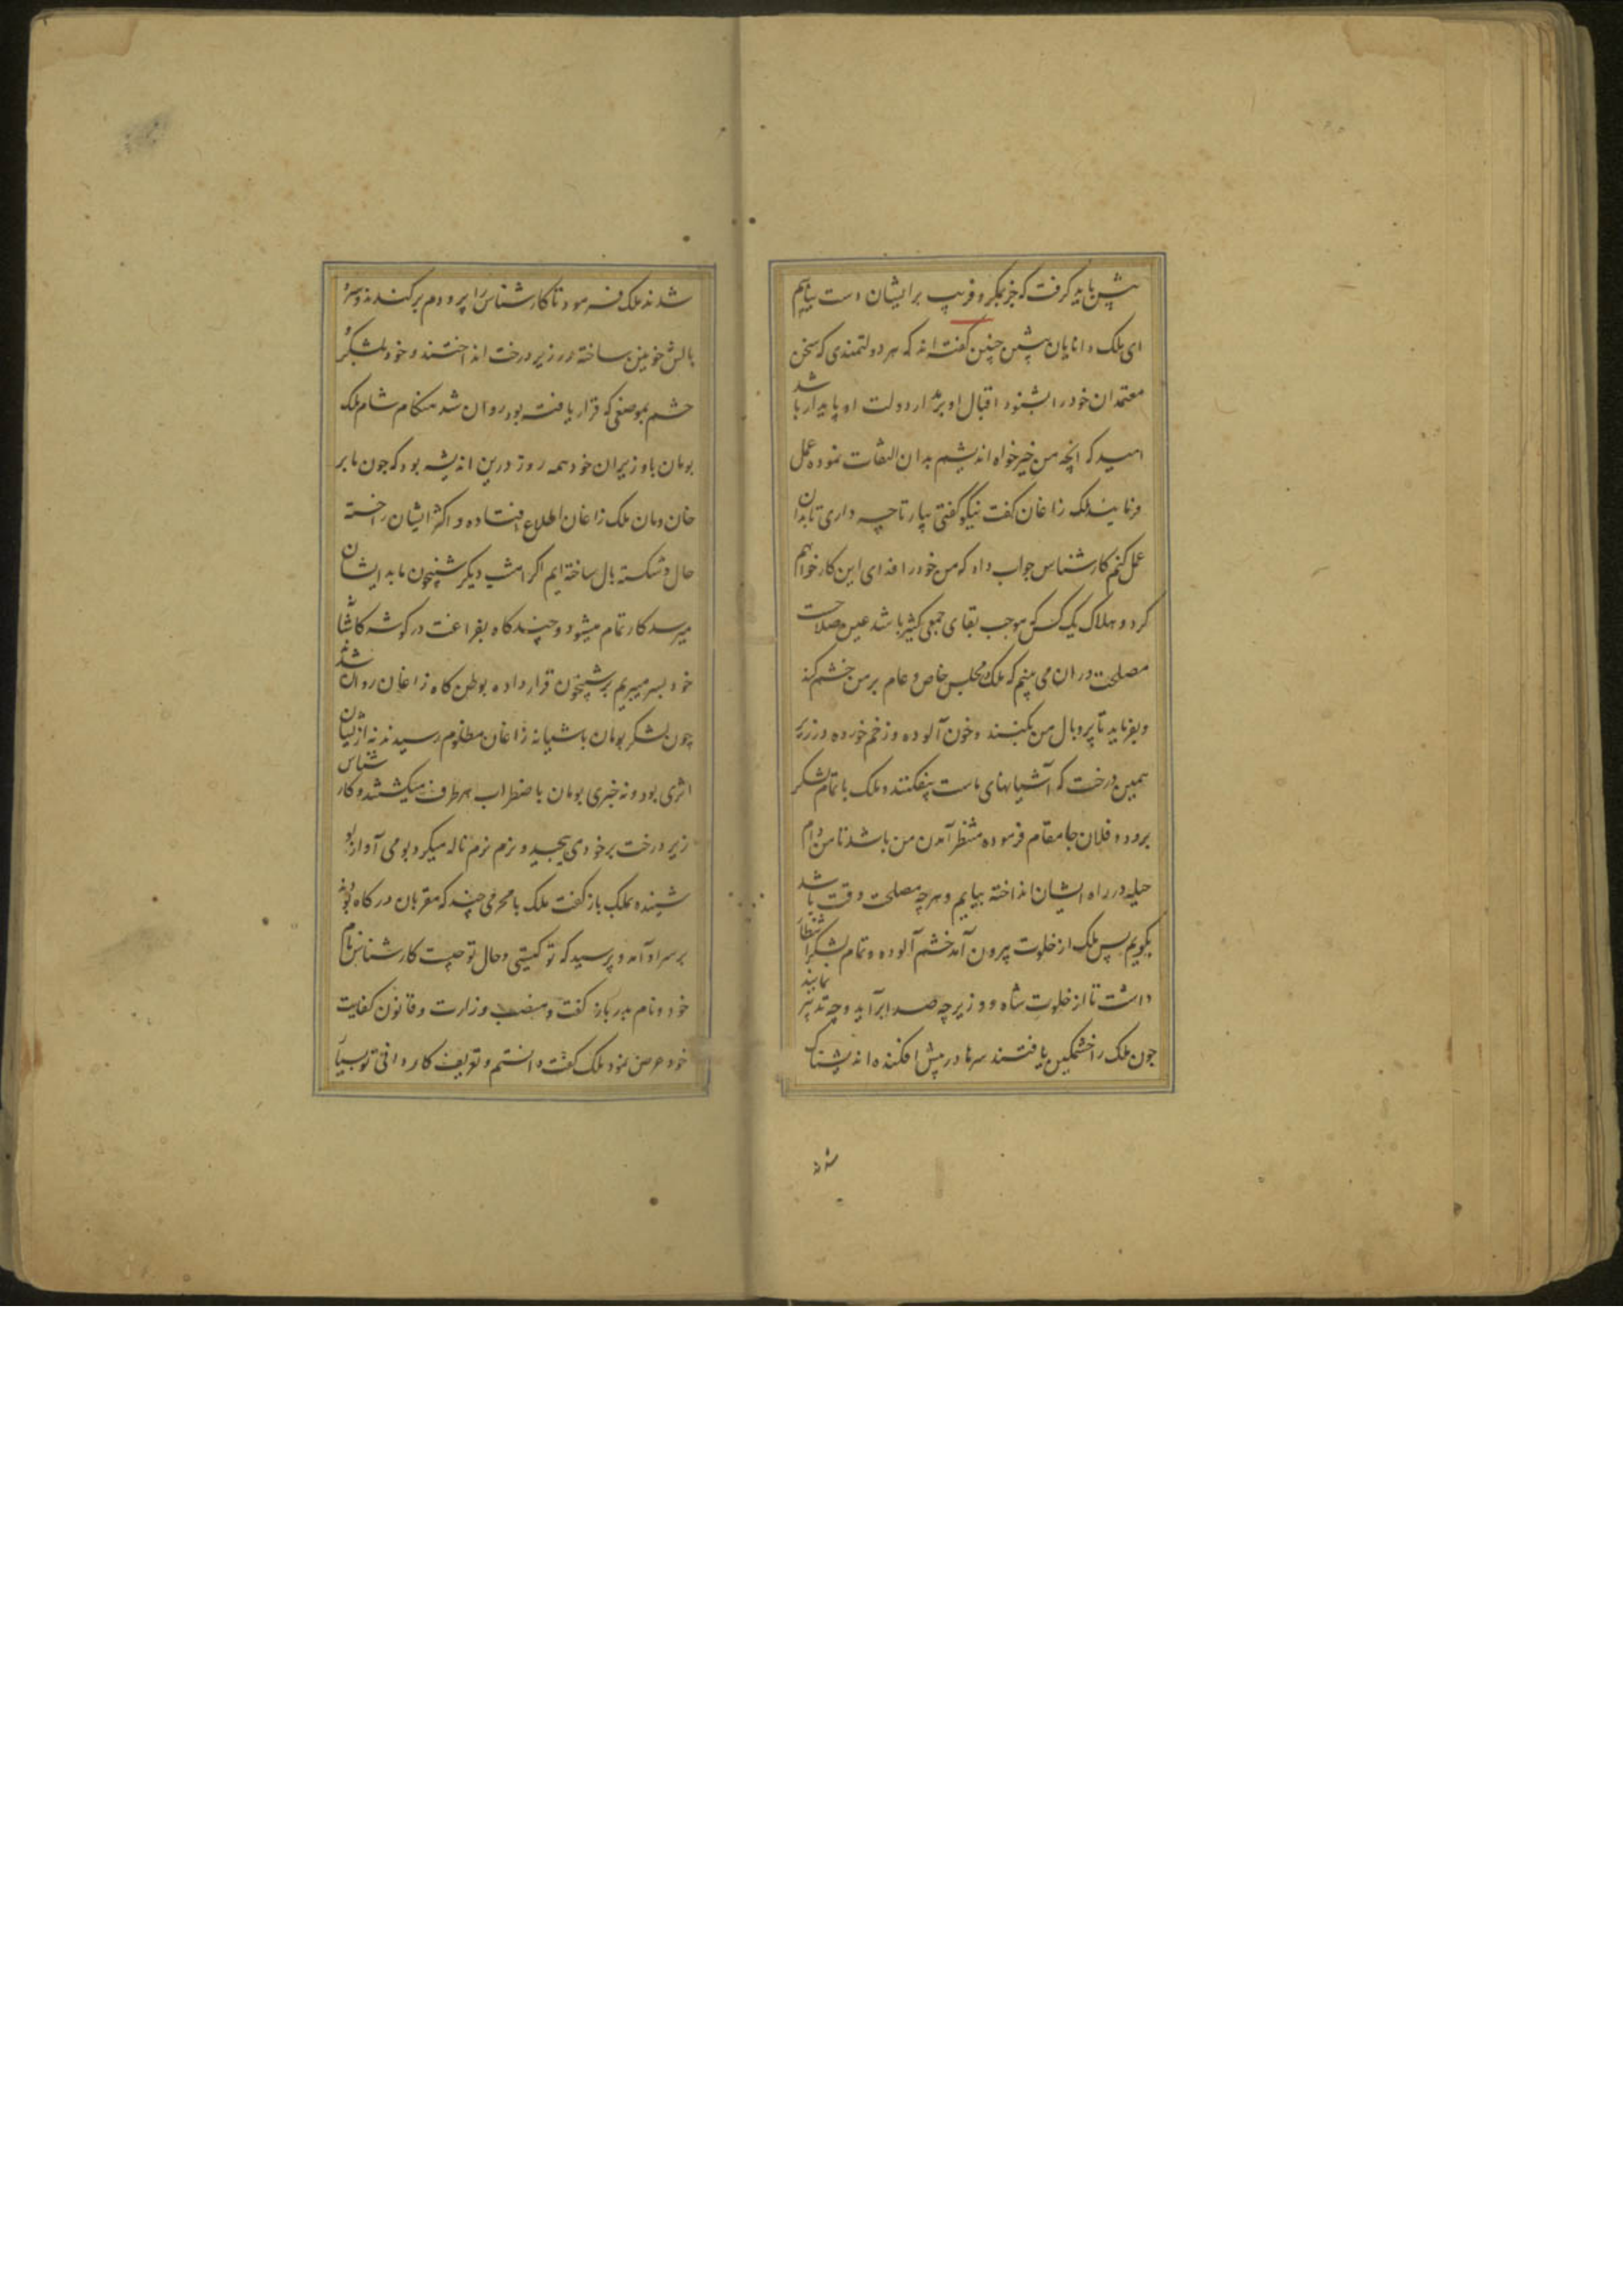 پیش باید گرفت که جز بمکر و فریب بر ایشان دست نیابیم
ای ملک دانایان پیشین چنین گفته اند که هر دولتمندی که سخن
معتمدان خود را بشنود اقبال او بر مدار و دولت او پایدار باشد
امید که انچه من خیرخواه اندیشم بدان التفات نموده عمل
فرمایند ملک زاغان گفت نیکو گفتی بیار تا چه داری تا بدان
عمل کنم کارشناس جواب داد که من خود را فدای این کار خواهم
کرد و هلاک یک کس که موجب بقای جمعی کثیر باشد عین صلاحست
مصلحت در ان می بینم که ملک در مجلس خاص و عام بر من خشم کند
و بفرماید تا پر و بال من بکنند و خون آلوده و زخم خورده در زیر
همین درخت که آشیانهای ماست بیفکنند و ملک با تمام لشکر
برود و فلان جا مقام فرموده منتظر آمدن من باشد تا من دام
حیله در راه ایشان انداخته بیایم و هر چه مصلحت وقت باشد
بگویم پس ملک از خلوت بیرون آمد خشم آلوده و تمام لشکر انتظار
داشت تا از خلوت شاه و وزیر چه صدا برآید و چه تدبیر نمایند
چون ملک را خشمگین یافتند سرها در پیش افکنده اندیشناک
شد
شدند ملک فرمود تا کارشناس را پر و دم برکندند و سر و
بالش خونین ساخته در زیر درخت انداختند و خود با لشکر و
حشم بموضعی که قرار یافته بود روان شد هنگام شام ملک
بومان با وزیران خود همه روز درین اندیشه بود که چون ما بر
خان و مان ملک زاغان اطلاع افتاده و اکثر ایشان را خسته
حال و شکسته بال ساخته ایم اگر امشب دیگر شبیخون ما به ایشان
میرسد کار تمام میشود و چندگاه بفراغت در گوشه کاشانه
خود بسر میبریم بر شبیخون قرار داده بوطن گاه زاغان روان شدند
چون لشکر بومان باشیانه زاغان مظلوم رسیدند نه از ایشان
اثری بود و نه خبری بومان باضطراب هر طرف میگشتند و کارشناس
زیر درخت بر خود می پیچید و نرم نرم ناله میکرد بومی آواز او
شنیده بملک باز گفت ملک با محرمی چند که مقربان درگاه بودند
بر سر او آمد و پرسید که تو کیستی و حال تو چیست کارشناس نام
خود و نام پدر باز گفت و منصب وزارت و قانون کفایت
خود عرض نمود ملک گفت دانستم و تعریف کاردانی تو بسیار